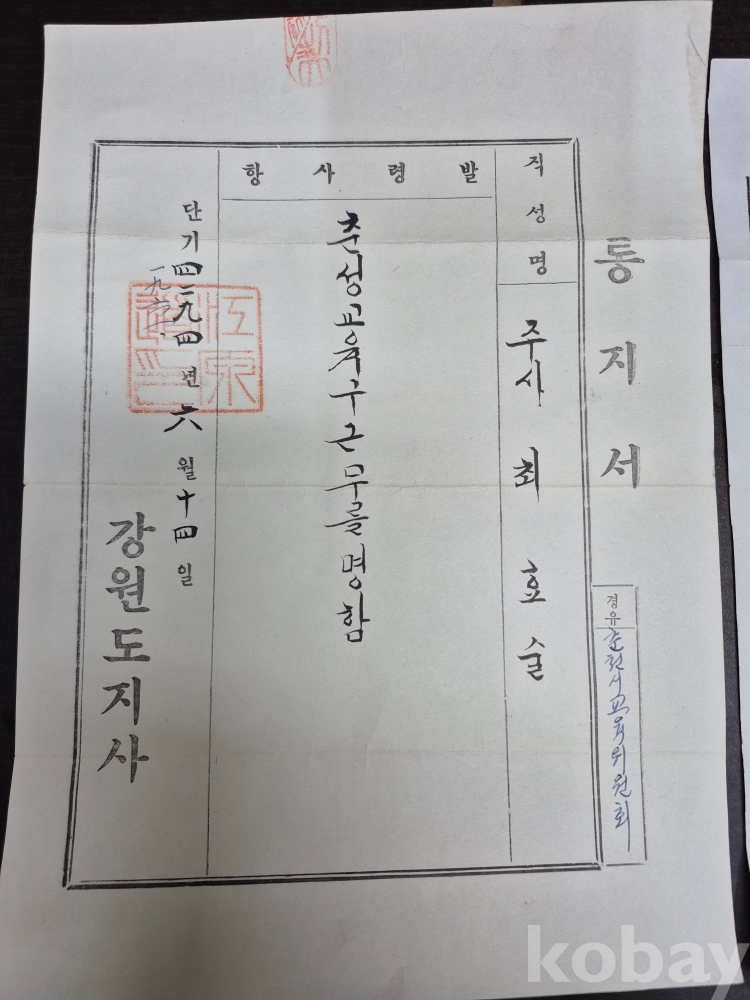 통지서
경유 춘천시교육위원회
직성명
주사 최효술
발령사항
춘성교육구근무를명함
단기四二九四년六월十四일
一九六一
강원도지사
江原道知事印
kobay